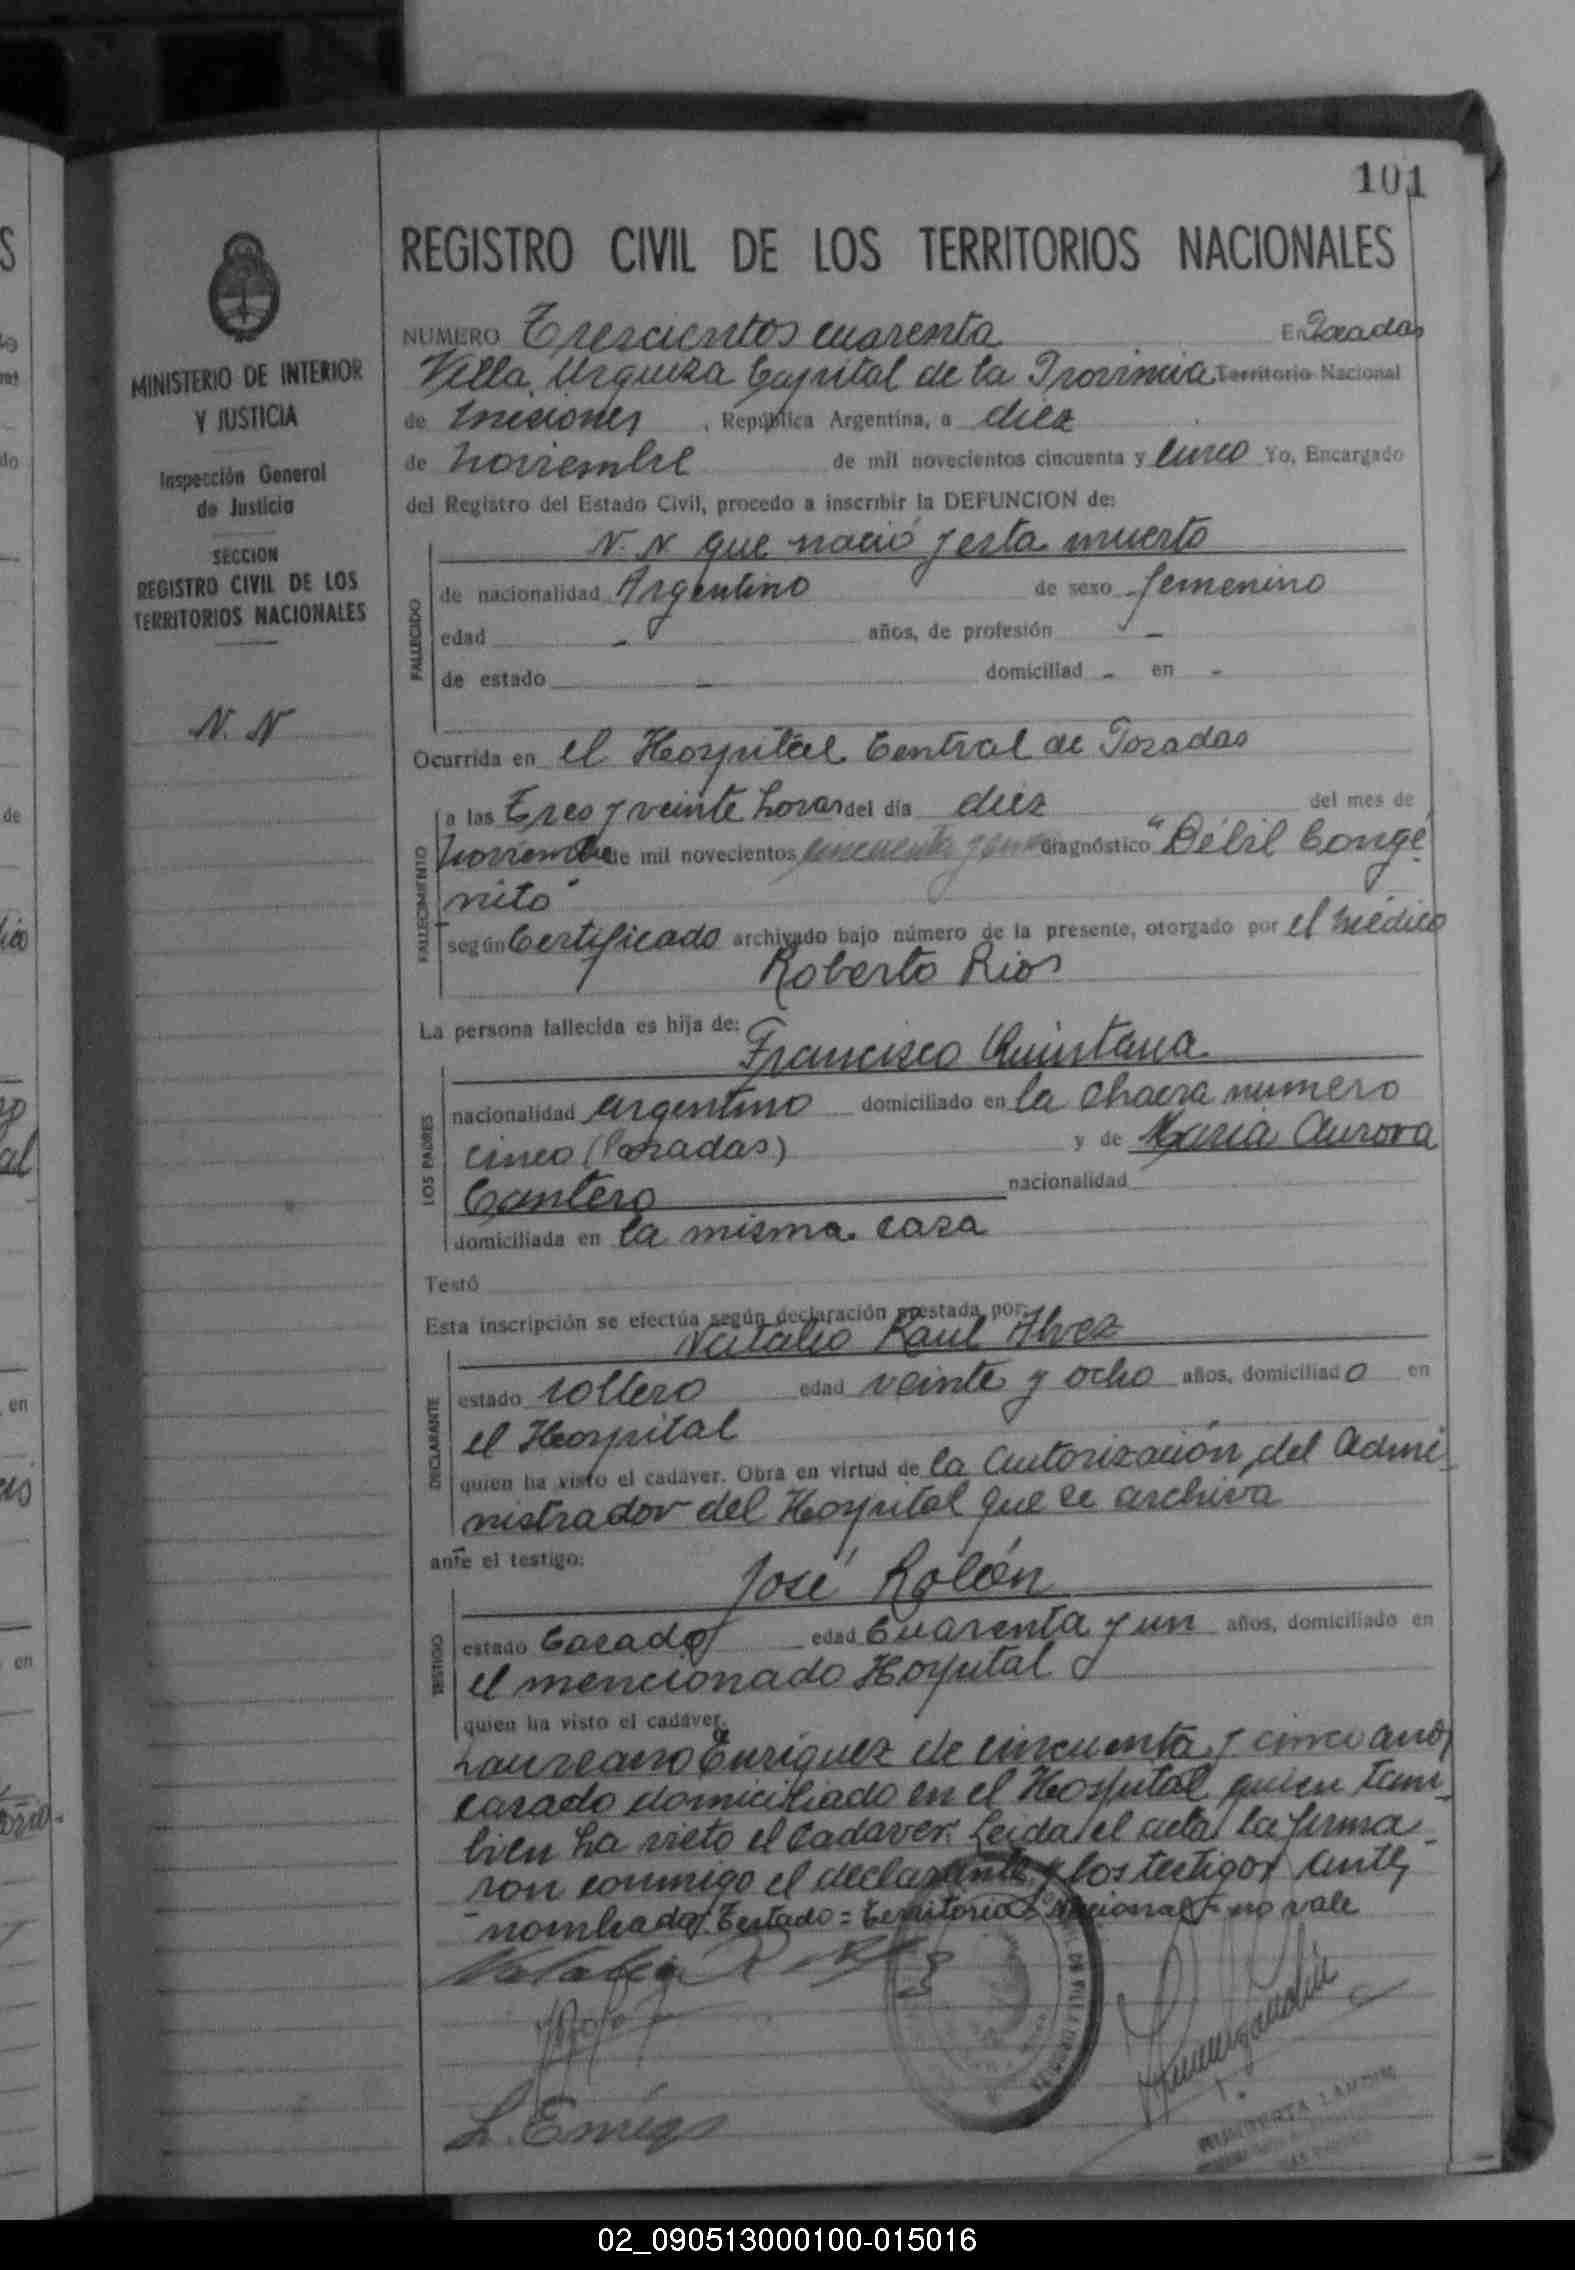 101
REGISTRO CIVIL DE LOS TERRITORIOS NACIONALES
MINISTERIO DE INTERIOR
Y JUSTICIA
Inspección General
de Justicia
SECCION
REGISTRO CIVIL DE LOS
TERRITORIOS NACIONALES
N. N
NUMERO Trescientos cuarenta En Posadas
Villa Urquiza Capital de la Provincia Territorio Nacional
de Misiones, República Argentina, a diez
de Noviembre de mil novecientos cincuenta y cinco Yo, Encargado
del Registro del Estado Civil, procedo a inscribir la DEFUNCION de:
N. N que nació y esta muerto
FALLECIDO
de nacionalidad Argentino de sexo femenino
edad - años, de profesión -
de estado - domiciliad - en -
Ocurrida en el Hospital Central de Posadas
FALLECIMIENTO
a las Tres y veinte horas del día diez del mes de
Noviembre de mil novecientos cincuenta y cinco diagnóstico "Débil Congé
nito"
según Certificado archivado bajo número de la presente, otorgado por el Médico
Roberto Rios
La persona fallecida es hija de:
Francisco Quintana
LOS PADRES
nacionalidad argentino domiciliado en la chacra numero
cinco (Posadas) y de Maria Aurora
Cantero nacionalidad
domiciliada en la misma casa
Testó
Esta inscripción se efectúa según declaración prestada por:
Natalio Raul Alvez
DECLARANTE
estado soltero edad veinte y ocho años, domiciliado en
el Hospital
quien ha visto el cadáver. Obra en virtud de la Autorización del Admi-
nistrador del Hospital que se archiva
ante el testigo:
José Rolón
TESTIGO
estado Casado edad Cuarenta y un años, domiciliado en
el mencionado Hospital
quien ha visto el cadáver.
Laureano Enriquez de cincuenta y cinco años
casado domiciliado en el Hospital quien tam-
bien ha visto el cadaver. Leida el acta la firma-
ron conmigo el declarante y los testigos ante-
nombrados. Testado = Territorio Nacional = no vale
L. Enriqz
02_090513000100-015016